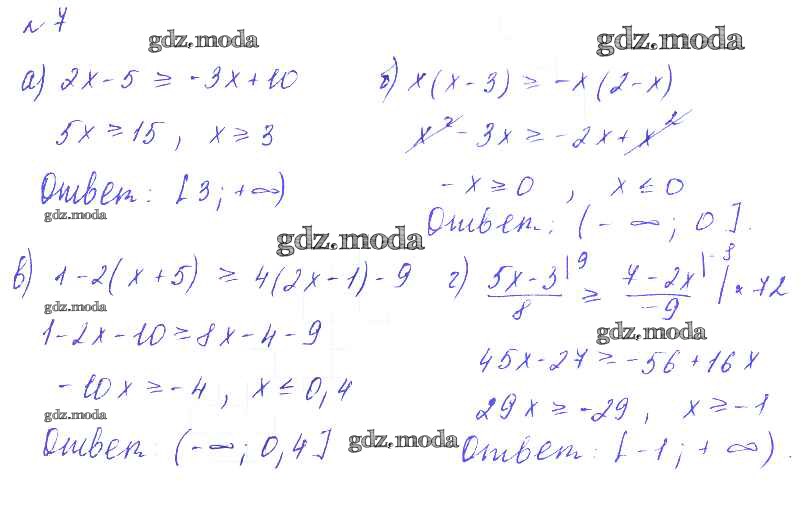 № 7
gdz.moda
gdz.moda
а) 2x - 5 ≥ -3x + 10
5x ≥ 15, x ≥ 3
Ответ: [3; +∞)
gdz.moda
б) x(x - 3) ≥ -x(2 - x)
x² - 3x ≥ -2x + x²
-x ≥ 0, x ≤ 0
Ответ: (-∞; 0].
gdz.moda
в) 1 - 2(x + 5) ≥ 4(2x - 1) - 9
gdz.moda
1 - 2x - 10 ≥ 8x - 4 - 9
-10x ≥ -4, x ≤ 0,4
gdz.moda
Ответ: (-∞; 0,4]
gdz.moda
г) 5x - 3|9 / 8 ≥ 7 - 2x|-8 / -9 | * 72
gdz.moda
45x - 27 ≥ -56 + 16x
29x ≥ -29, x ≥ -1
Ответ: [-1; +∞).